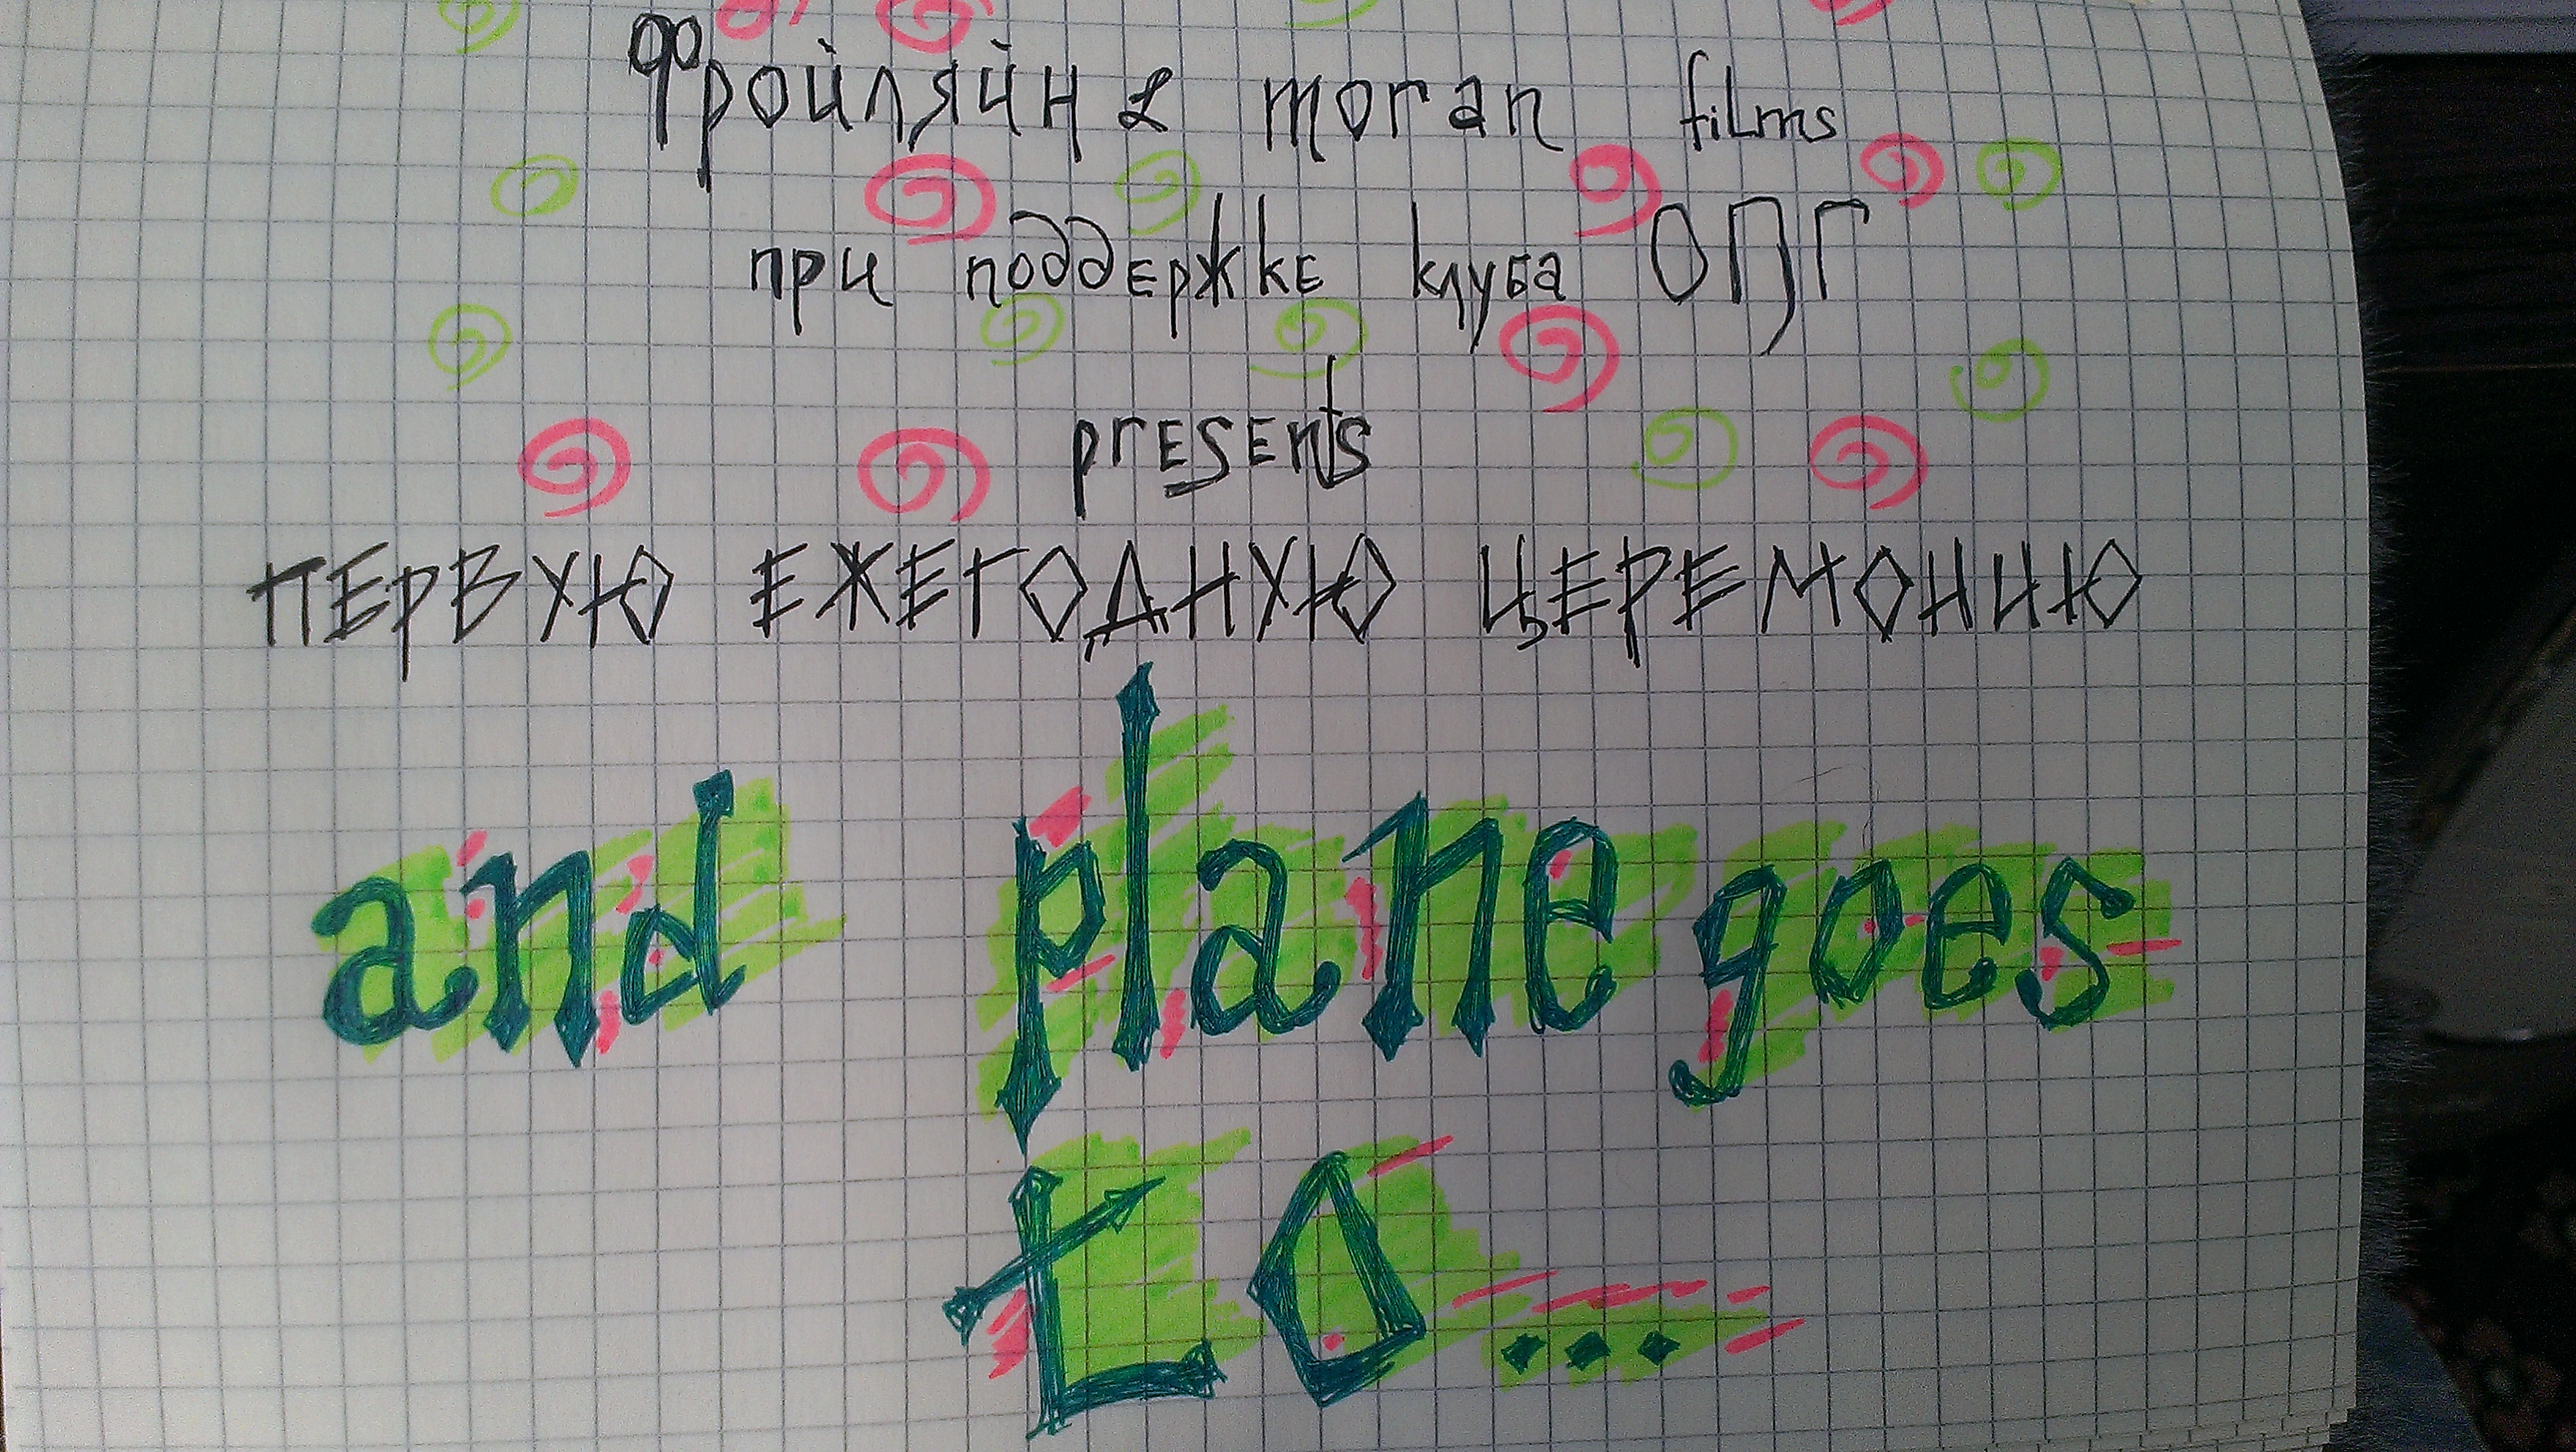 фройляйн & moran films
при поддержке клуба ОПГ
presents
ПЕРВУЮ ЕЖЕГОДНУЮ ЦЕРЕМОНИЮ
and plane goes
to...